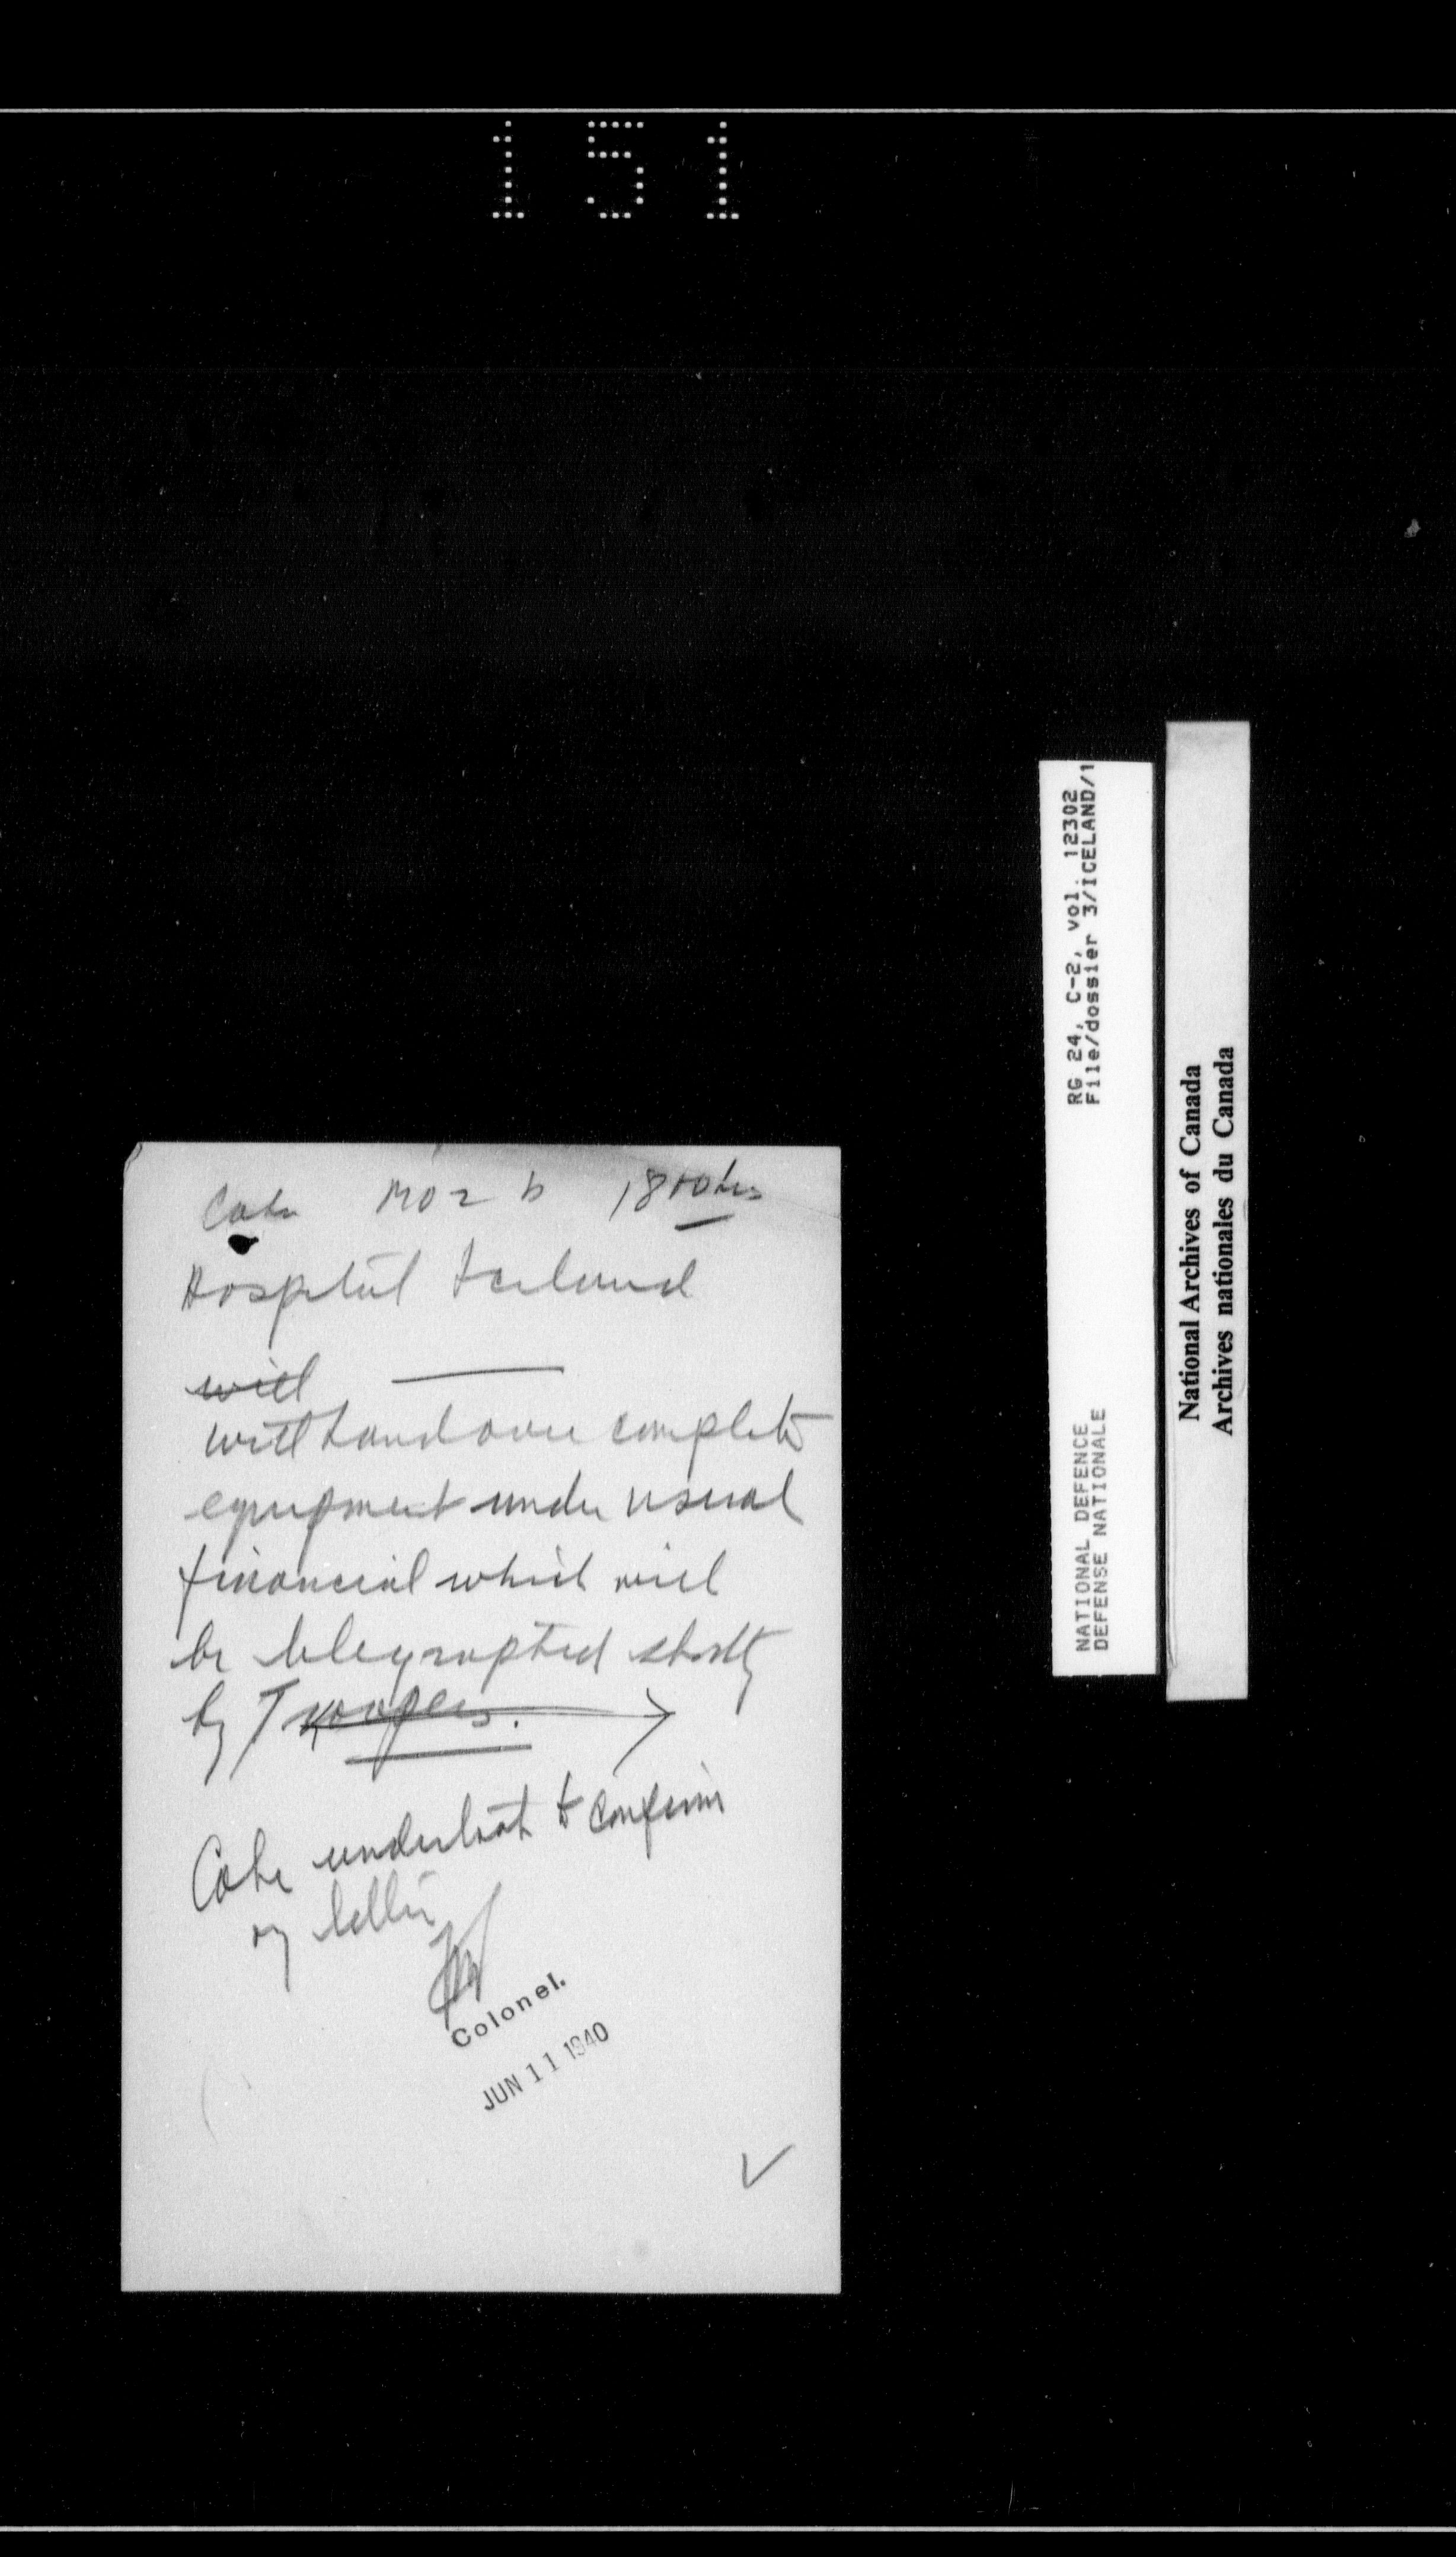 151
Coke MO2 b 1800 hrs
Hospital Iceland
will
will hand over complete
equipment under usual
financial which will
be telegraphed shortly
by Troopers.
Coke undertook to confirm
by letter
Colonel.
JUN 11 1940
RG 24, C-2, vol. 12302
File/dossier 3/ICELAND/1
NATIONAL DEFENCE
DEFENSE NATIONALE
National Archives of Canada
Archives nationales du Canada